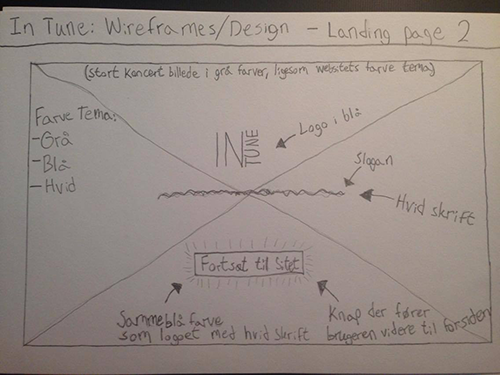 In Tune: Wireframes/Design - Landing page 2
(Stort Koncert billede i grå farver, ligesom websitets farve tema)
Farve Tema:
-Grå
-Blå
-Hvid
IN TUNE
Logo i blå
Slogan
Hvid skrift
Fortsæt til Sitet
Samme blå farve
som logoet med hvid skrift
Knap der fører
brugeren videre til forsiden